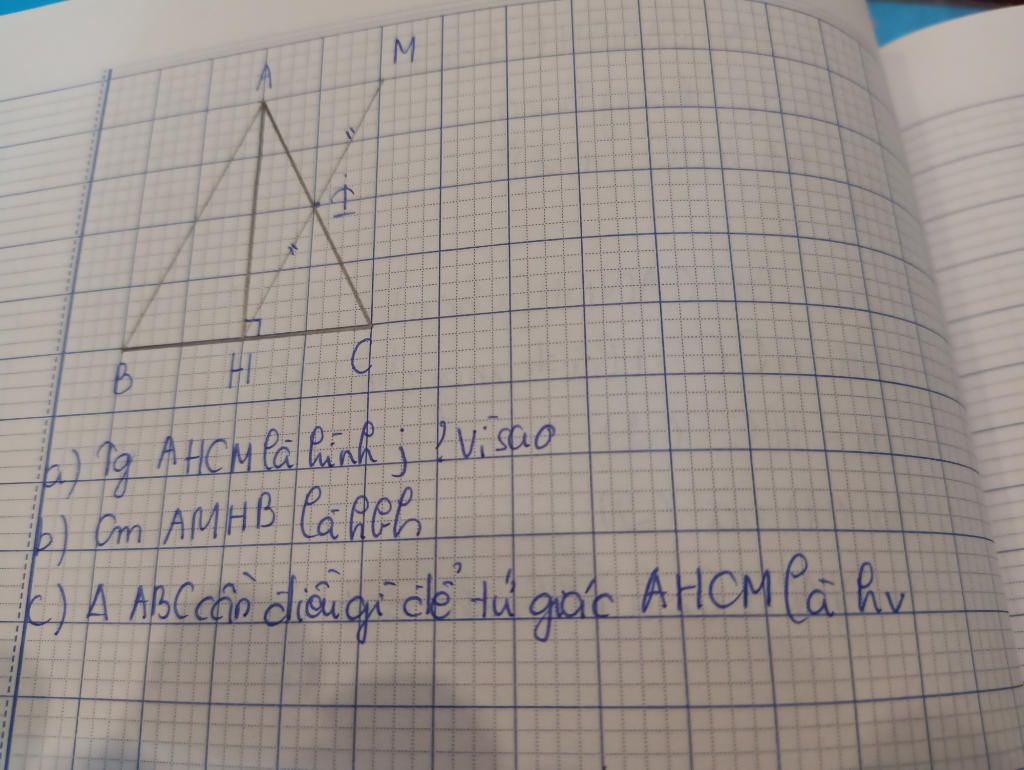 M
A
I
B H C
a) Tg AHCM là hình j ? Vì sao
b) Cm AMHB là hbh
c) Δ ABC cần điều gì để tứ giác AHCM là hv